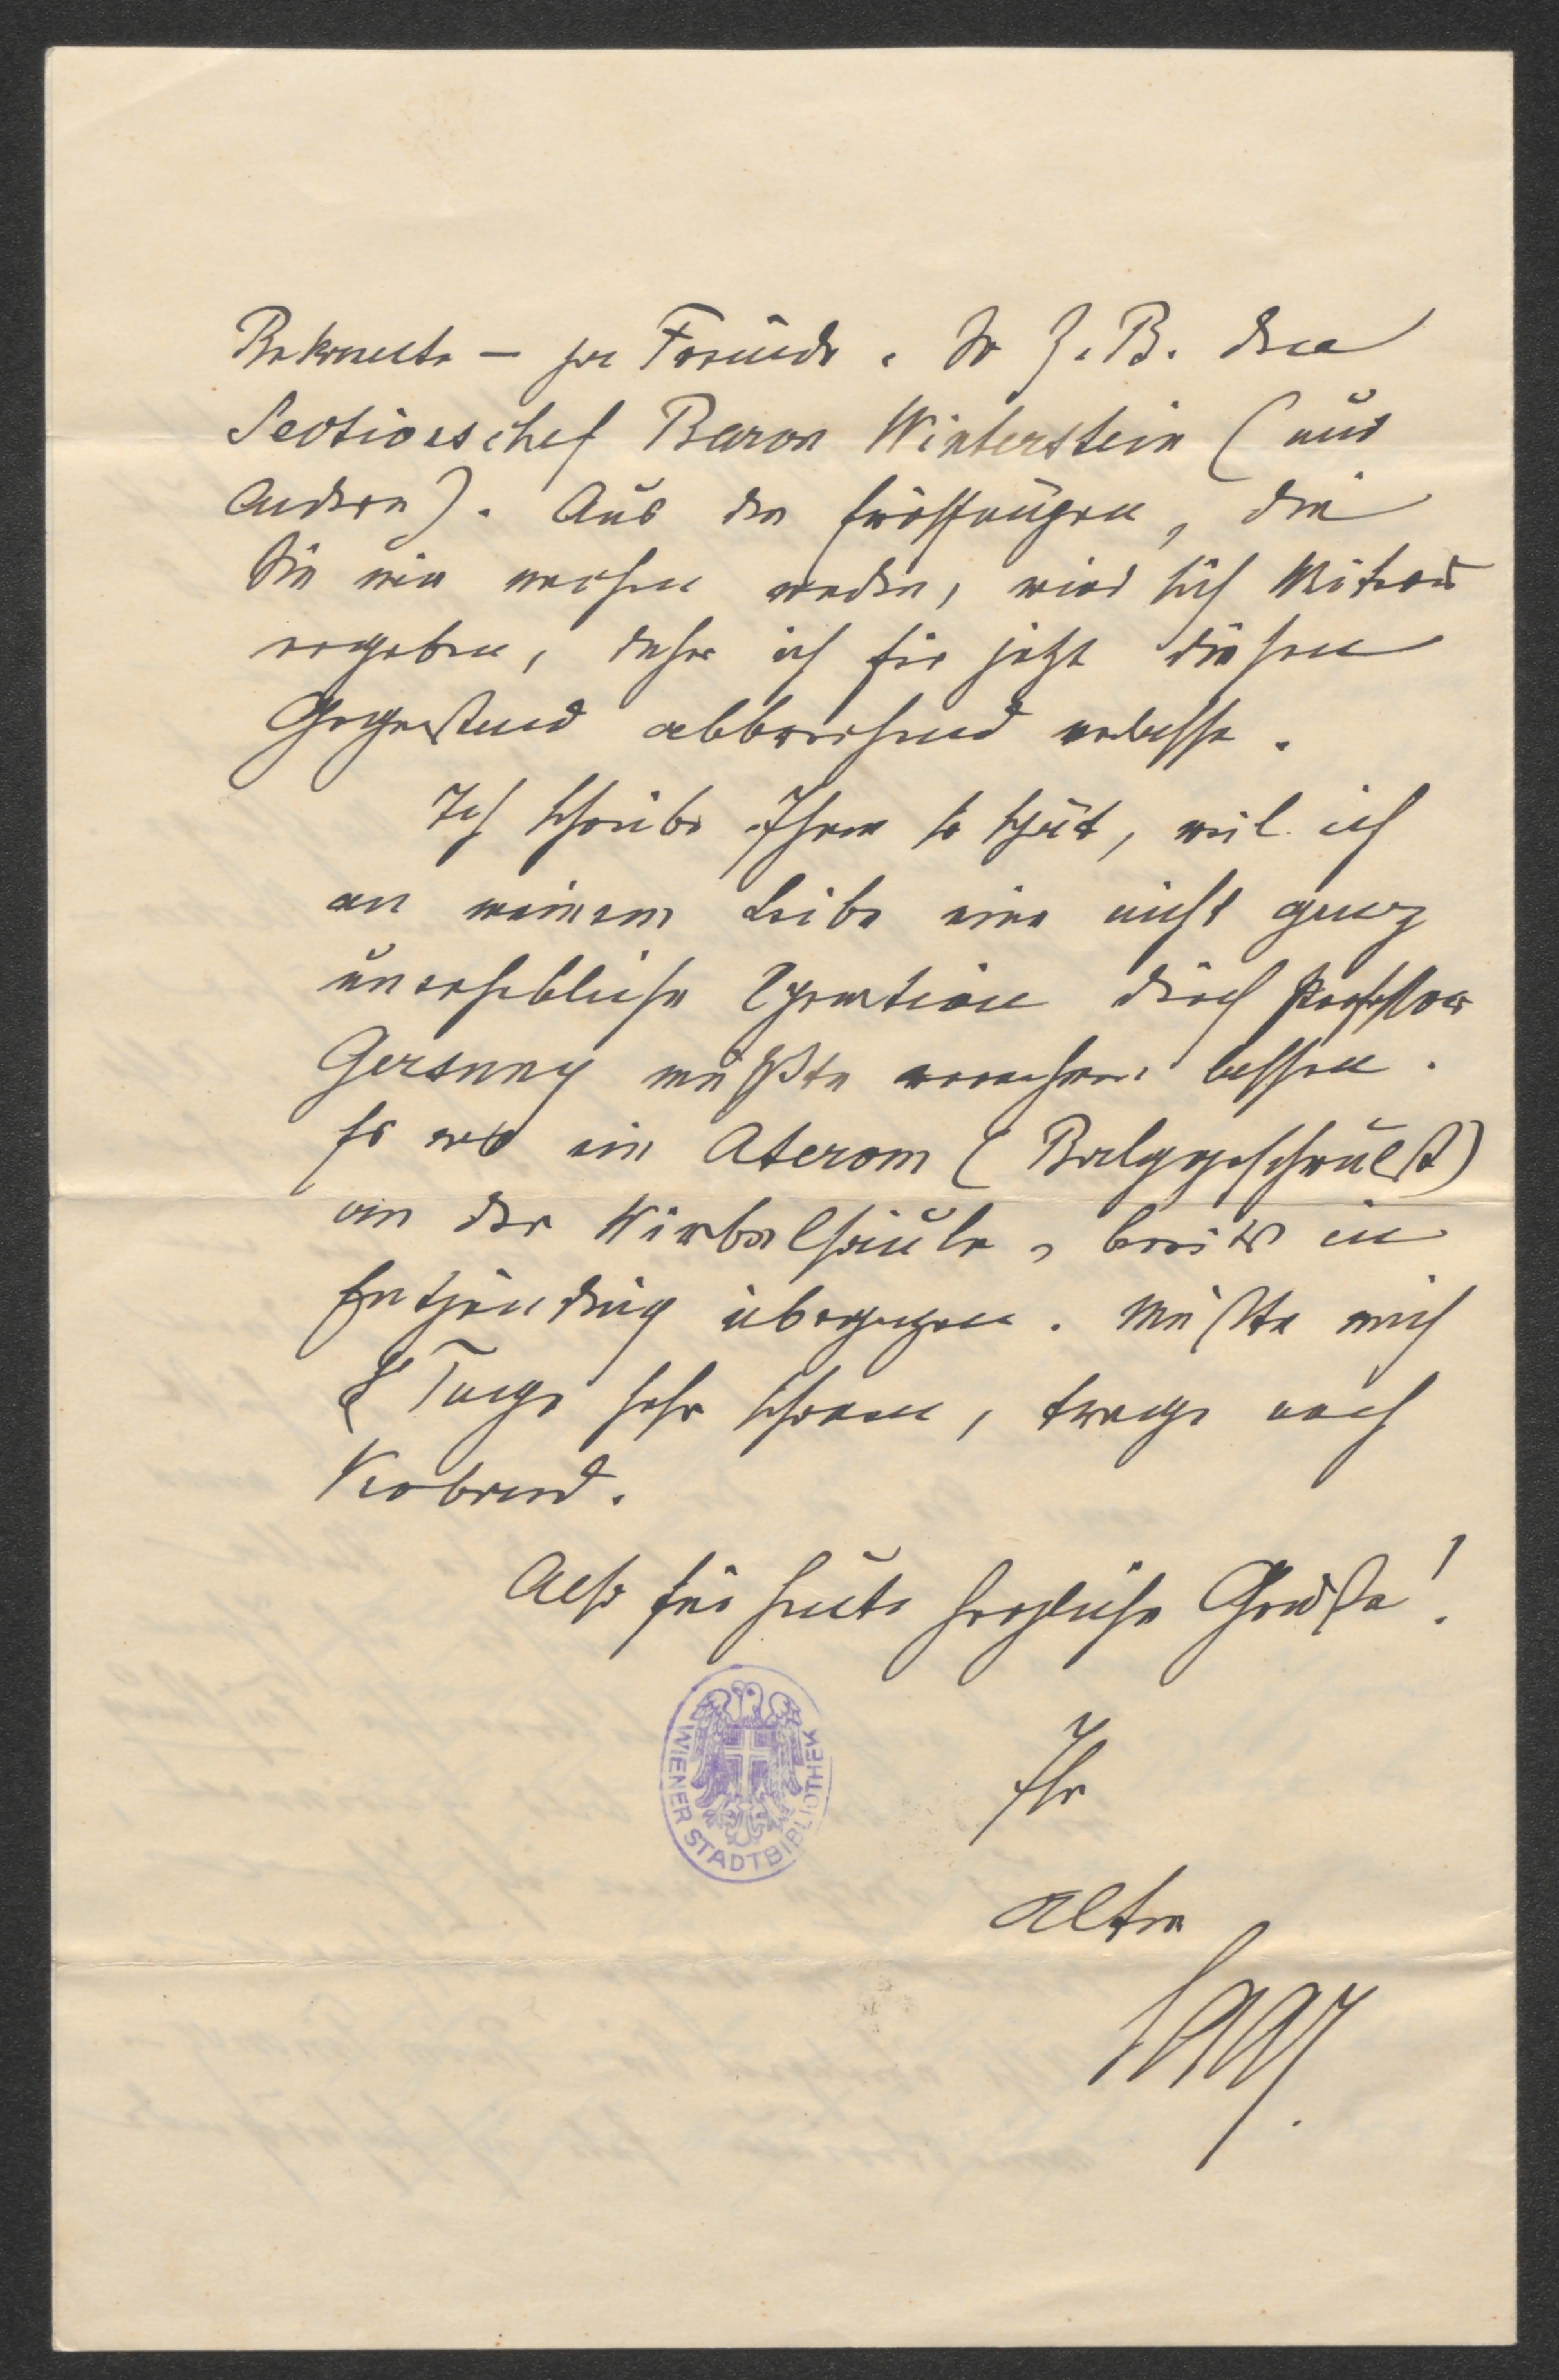 Bekannte – ja Freunde. So z. B. den
Sectionschef Baron Winterstein (und
Andere). Aus den Eröffnungen, die
Sie mir machen werden, wird sich Weiteres
ergeben, daher ich für jetzt diesen
Gegenstand abbrechend verlasse.
Ich schreibe Ihnen so spät, weil ich
an meinem Leibe eine nicht ganz
unerhebliche Operation durch Professor
Gersuny mußte vornehmen lassen.
Es war ein Aterom (Balggeschwulst)
an der Wirbelsäule, bereits in
Entzündung übergegangen. Mußte mich
8 Tage sehr schonen, trage noch
Verband.
Also für heute herzliche Grüße!
Ihr
alter
Saar.
WIENER STADTBIBLIOTHEK